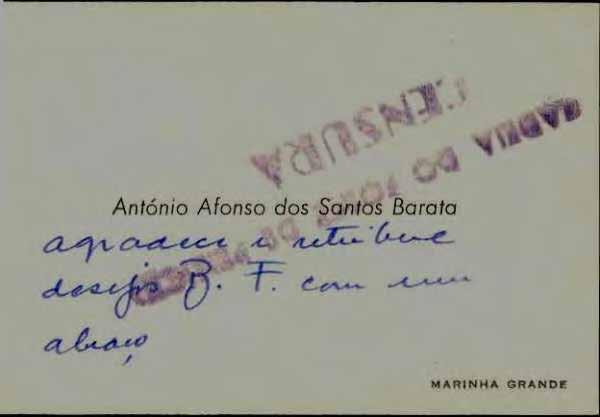 CENSURA
CADEIA DO FORTE DE PENICHE
António Afonso dos Santos Barata
agradece e retribue
desejos B. F. com um
abraço
MARINHA GRANDE